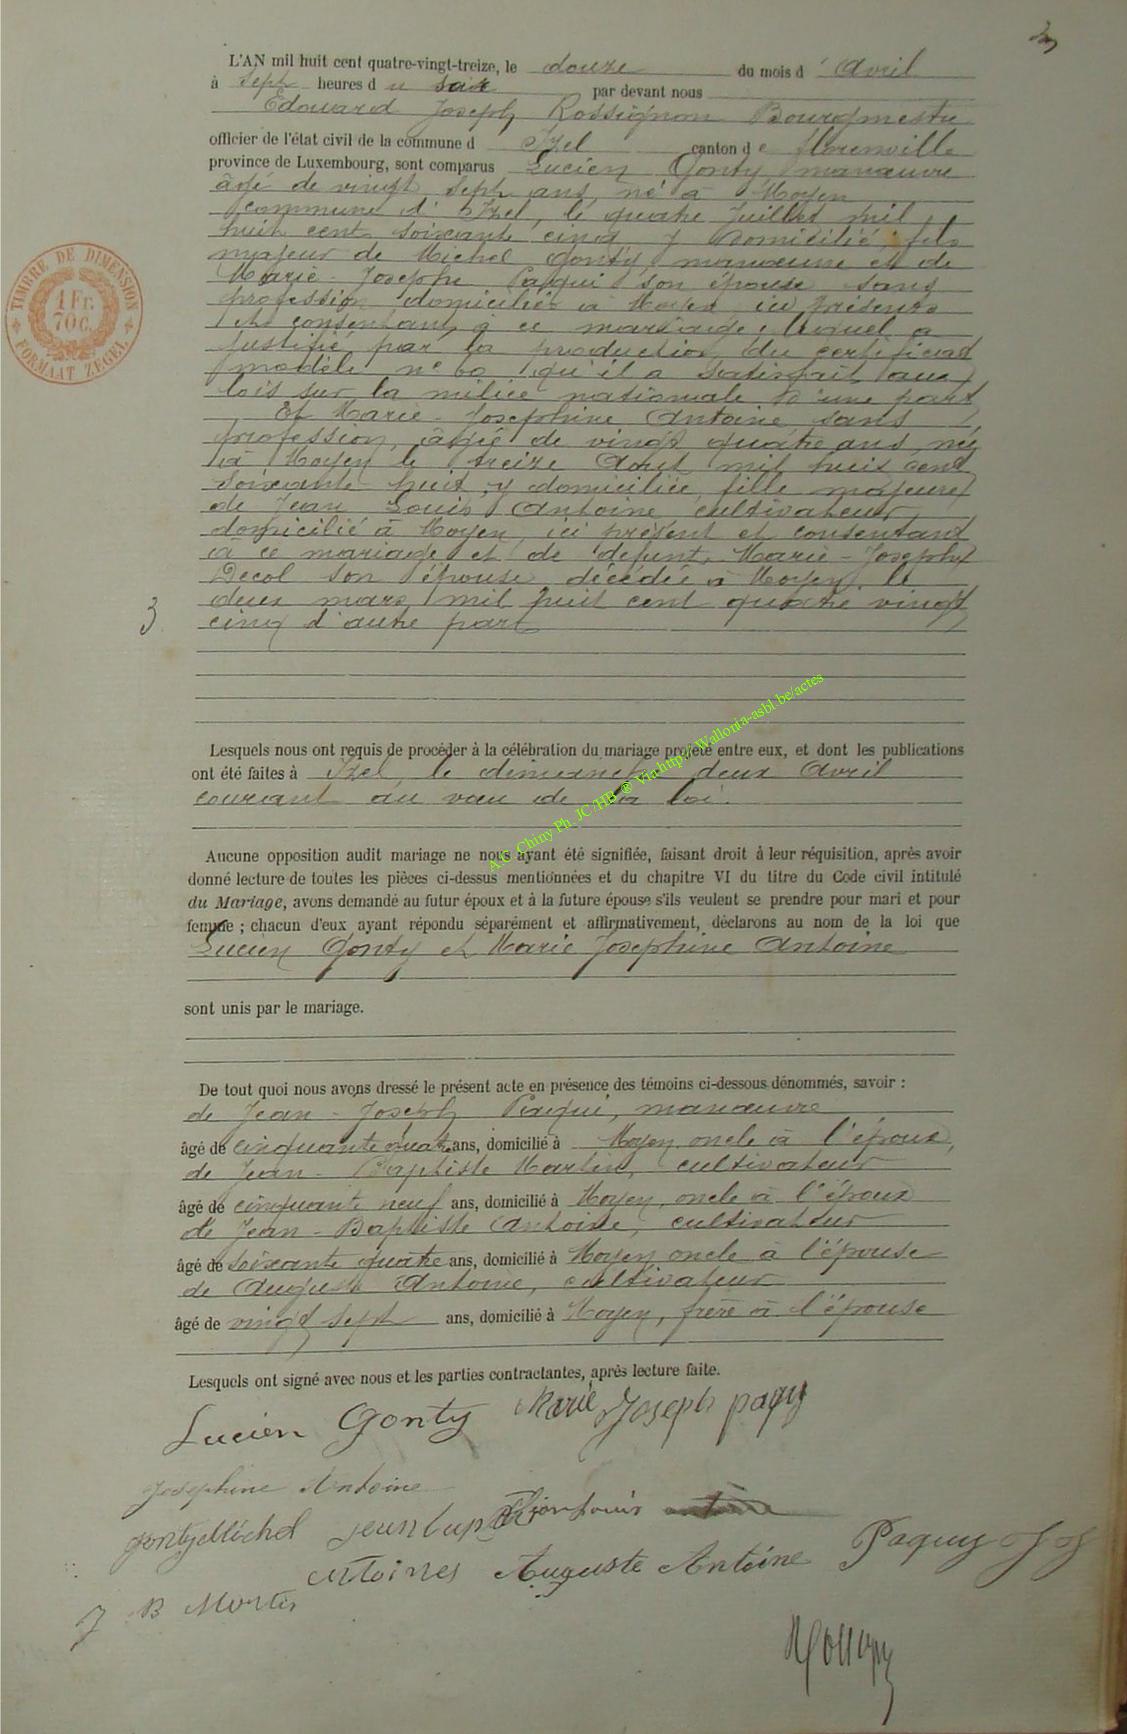 3
L'AN mil huit cent quatre-vingt-treize, le douze du mois d' Avril
à Sept heures d u soir par devant nous
Edouard Joseph Rossignon Bourgmestre
officier de l'état civil de la commune d Izel canton d e florenville
province de Luxembourg, sont comparus Lucien Gonty manœuvre
âgé de vingt sept ans, né à Moyen
commune d' Izel, le quatre Juillet mil
huit cent soixante cinq y domicilié, fils
majeur de Michel Gonty manœuvre et de
Marie-Josephe Paqui son épouse sans
profession domiciliés à Moyen ici présents
et consentant à ce mariage, lequel a
justifié par la production du certificat
modèle n° 60 qu'il a satisfait aux
lois sur la milice nationale d'une part
Et Marie-Josephine Antoine sans
profession, âgée de vingt quatre ans, née
à Moyen le treize Aout mil huit cent
soixante huit, y domiciliée, fille majeure
de Jean Louis Antoine cultivateur,
domicilié à Moyen, ici présent et consentant
à ce mariage et de defunte Marie-Josephe
Decol son épouse décédée à Moyen le
deux mars mil huit cent quatre vingt
3 cinq d'autre part
Lesquels nous ont requis de procéder à la célébration du mariage projeté entre eux, et dont les publications
ont été faites à Izel, le dimanche deux Avril
courant au vœu de la loi.
A.C. Chiny Ph. JC /HB ® Via http://Wallonia-asbl.be/actes
Aucune opposition audit mariage ne nous ayant été signifiée, faisant droit à leur réquisition, après avoir
donné lecture de toutes les pièces ci-dessus mentionnées et du chapitre VI du titre du Code civil intitulé
du Mariage, avons demandé au futur époux et à la future épouse s'ils veulent se prendre pour mari et pour
femme ; chacun d'eux ayant répondu séparément et affirmativement, déclarons au nom de la loi que
Lucien Gonty et Marie Josephine Antoine
sont unis par le mariage.
De tout quoi nous avons dressé le présent acte en présence des témoins ci-dessous dénommés, savoir :
de Jean-Joseph Paqui, manœuvre
âgé de cinquante quatre ans, domicilié à Moyen, oncle à l'époux,
de Jean-Baptiste Martin, cultivateur
âgé de cinquante neuf ans, domicilié à Moyen, oncle à l'époux
de Jean-Baptiste Antoine, cultivateur
âgé de soixante quatre ans, domicilié à Moyen, oncle à l'épouse
de Auguste Antoine, cultivateur
âgé de vingt sept ans, domicilié à Moyen, frère à l'épouse
Lesquels ont signé avec nous et les parties contractantes, après lecture faite.
Lucien Gonty Marie Joseph paquy
Josephine Antoine
gonty Michel
Antoines Auguste Antoine Paquy J J
J B Martin
TIMBRE DE DIMENSION
1 Fr.
70 c.
FORMAAT ZEGEL